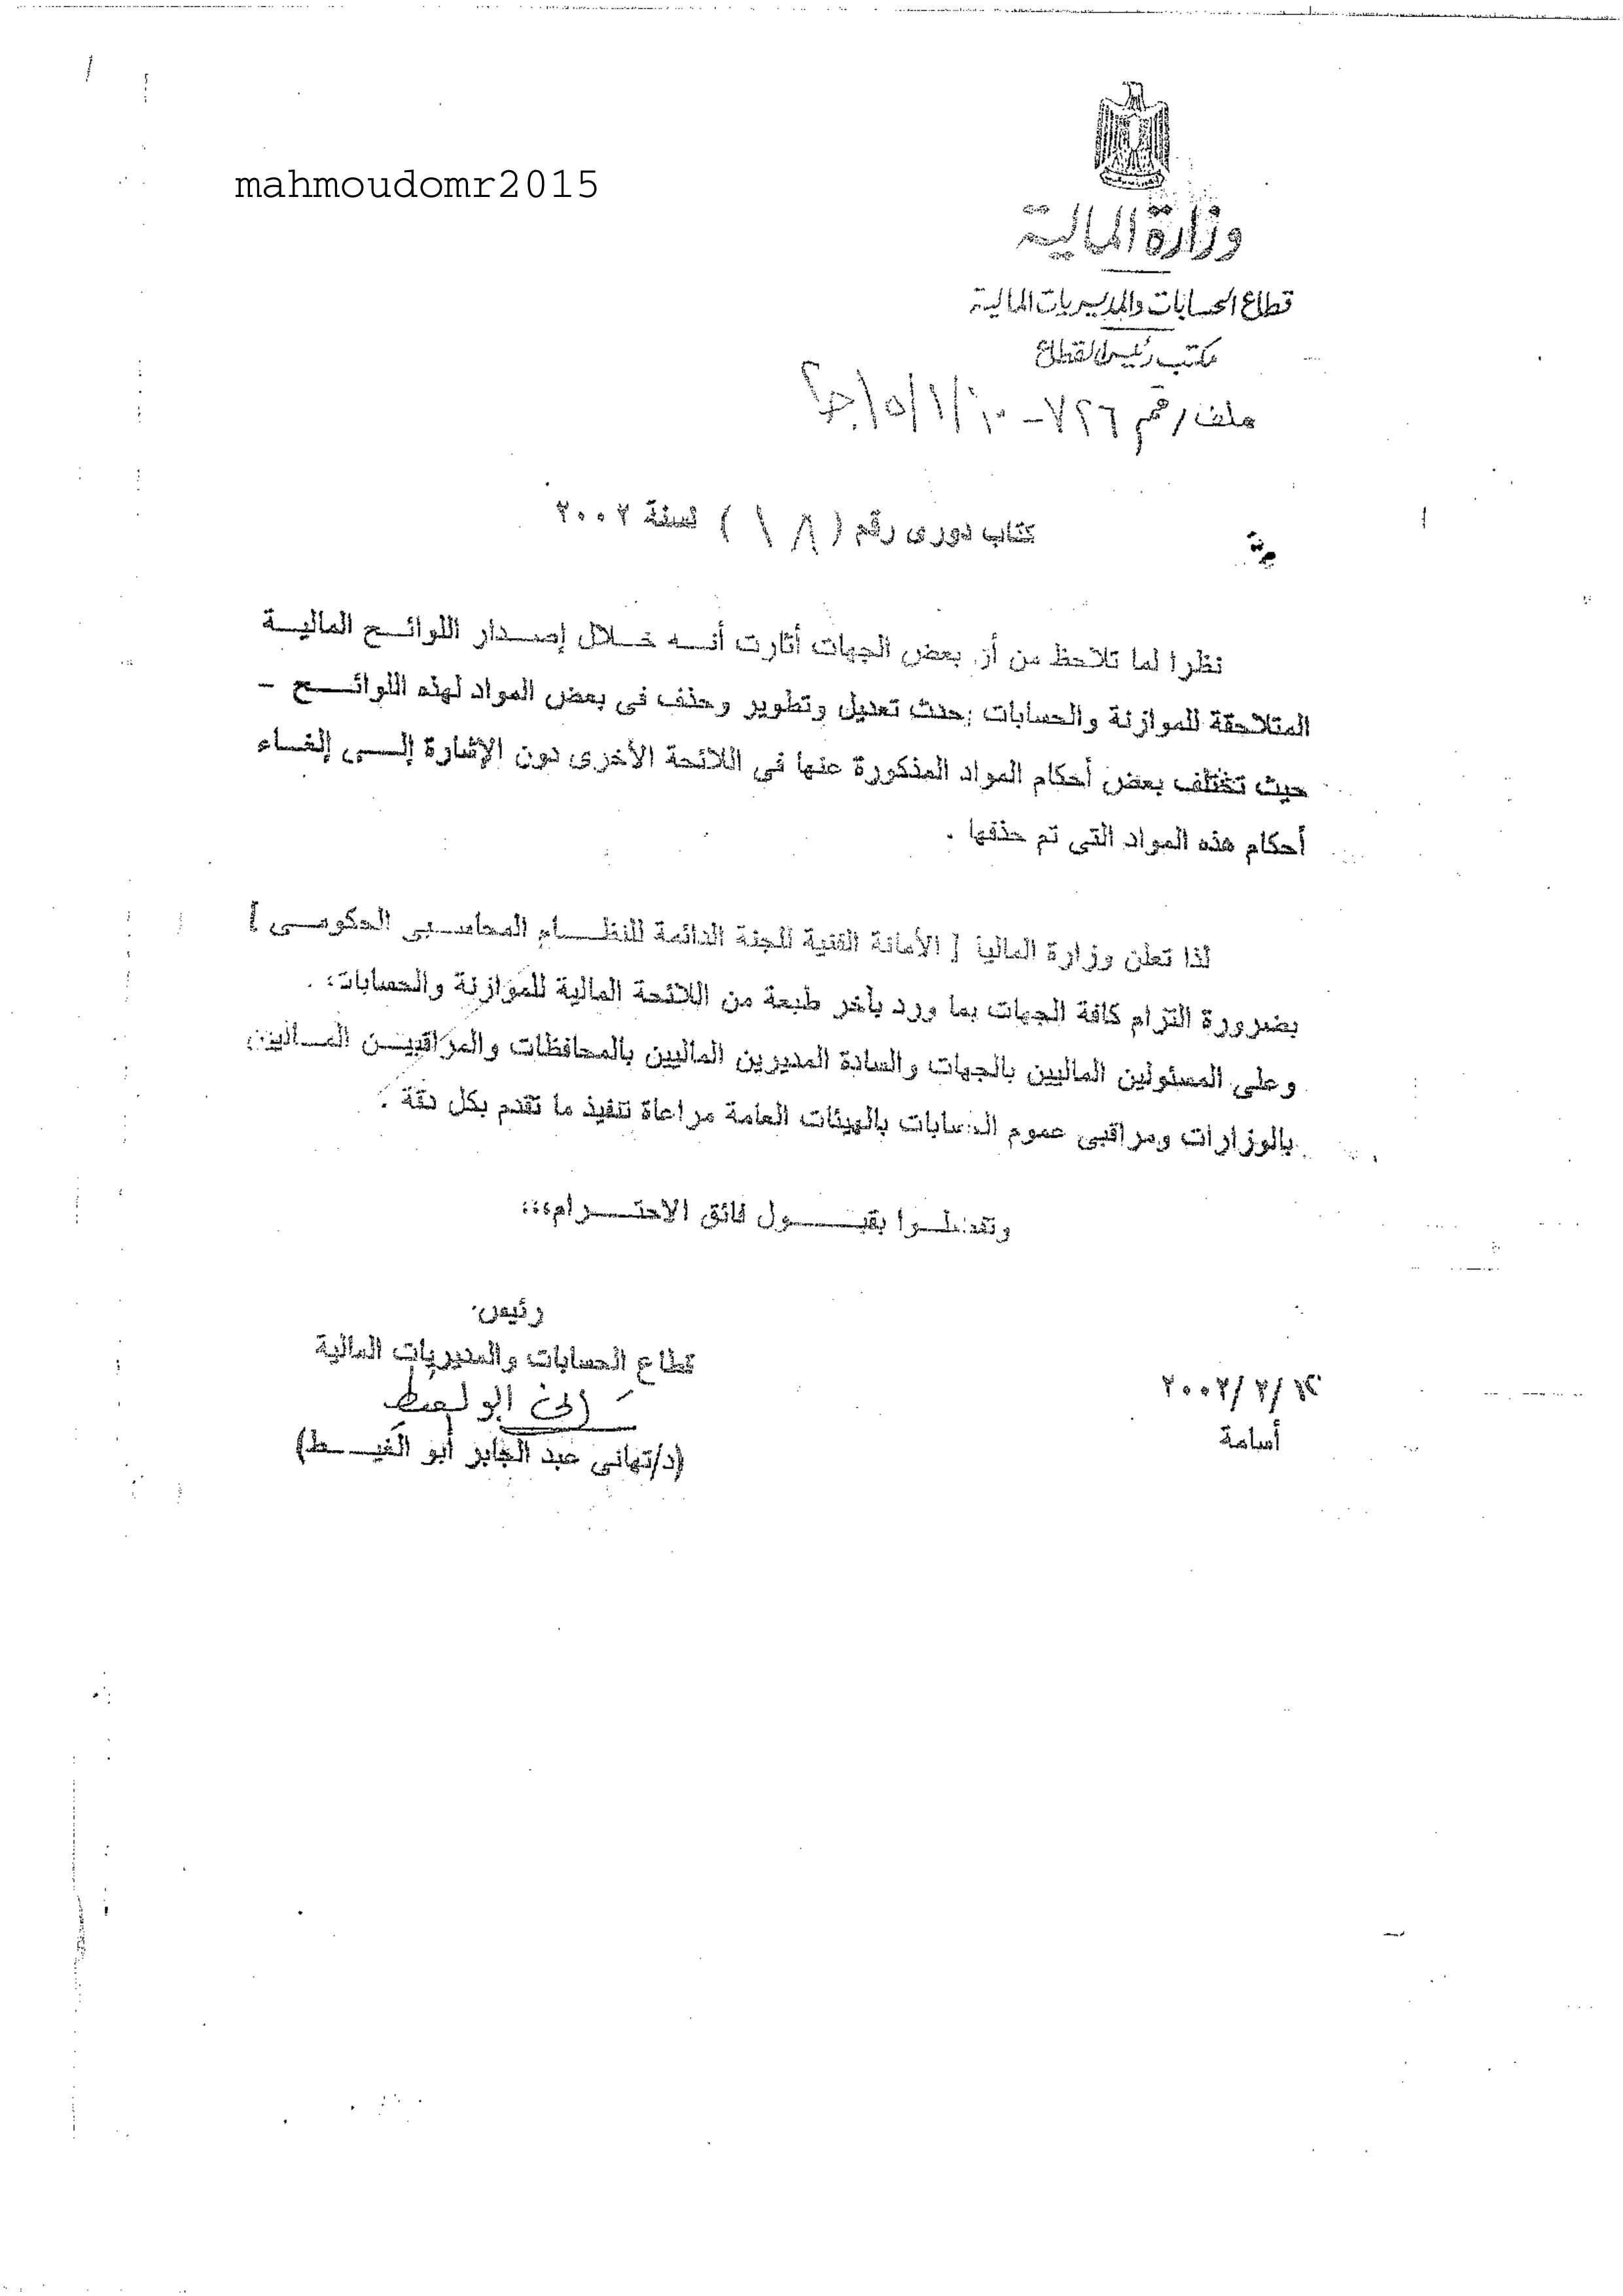 mahmoudomr2015
وزارة المالية
قطاع الحسابات والمديريات المالية
مكتب رئيس القطاع
ملف رقم ٧٢٦ -
كتاب دورى رقم ( ١٨ ) لسنة ٢٠٠٢
نظرا لما تلاحظ من أن بعض الجهات أثارت أنه خلال إصدار اللوائح المالية
المتلاحقة للموازنة والحسابات حدث تعديل وتطوير وحذف فى بعض المواد لهذه اللوائح -
حيث تختلف بعض أحكام المواد المذكورة عنها فى اللائحة الأخرى دون الإشارة إلى إلغاء
أحكام هذه المواد التى تم حذفها .
لذا تعلن وزارة المالية [ الأمانة الفنية للجنة الدائمة للنظام المحاسبى الحكومى ]
بضرورة التزام كافة الجهات بما ورد بآخر طبعة من اللائحة المالية للموازنة والحسابات .
وعلى المسئولين الماليين بالجهات والسادة المديرين الماليين بالمحافظات والمراقبين الماليين
بالوزارات ومراقبى عموم الحسابات بالهيئات العامة مراعاة تنفيذ ما تقدم بكل دقة .
وتفضلوا بقبول فائق الاحترام،،،
رئيس
قطاع الحسابات والمديريات المالية
(د/تهانى عبد الجابر أبو الغيط)
/٢/٢٠٠٢
أسامة